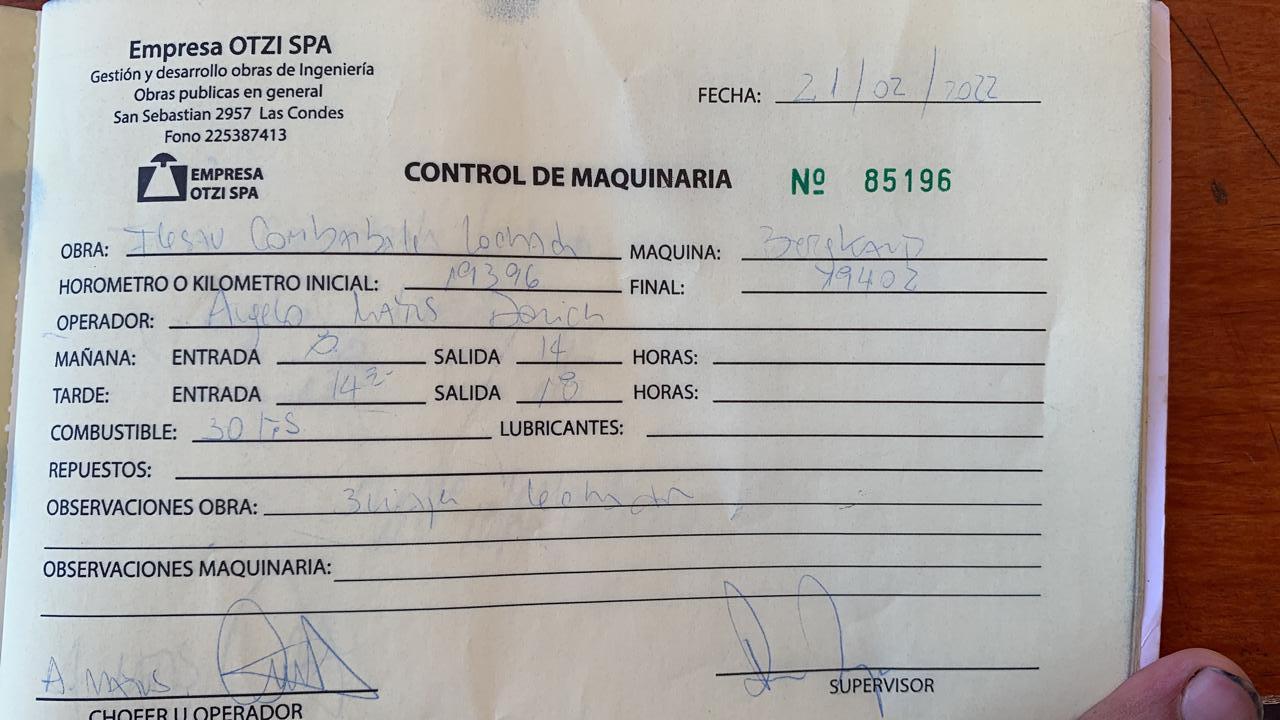 Empresa OTZI SPA
Gestión y desarrollo obras de Ingeniería
Obras publicas en general
San Sebastian 2957 Las Condes
Fono 225387413
FECHA: 21/02/2022
EMPRESA
OTZI SPA
CONTROL DE MAQUINARIA Nº 85196
OBRA: MAQUINA:
HOROMETRO O KILOMETRO INICIAL: 19396 FINAL: 19402
OPERADOR: Angelo
MAÑANA: ENTRADA 8 SALIDA 14 HORAS:
TARDE: ENTRADA SALIDA 18 HORAS:
COMBUSTIBLE: 30 LTS LUBRICANTES:
REPUESTOS:
OBSERVACIONES OBRA:
OBSERVACIONES MAQUINARIA:
CHOFER U OPERADOR
SUPERVISOR